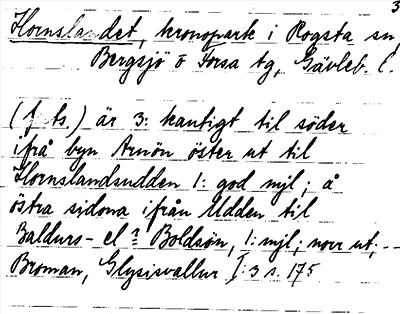 3
Hornslandet, kronopark i Rogsta sn,
Bergsjö o Forsa tg, Gävleb. l.
( f. ts.) är 3: kantigt til söder
ifrå byn Arnön öster ut til
Hornslandsudden 1: god mjl; å
östra sidona ifrån Udden til
Baldurs- el ? Boldsön, 1: mjl; norr ut; --
Broman, Glysisvallur I: 3 s. 175